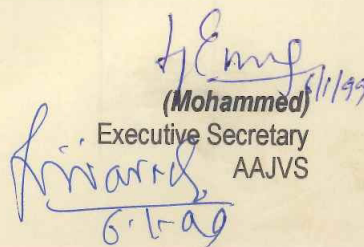 6/1/99
(Mohammed)
Executive Secretary
AAJVS
6.1.99